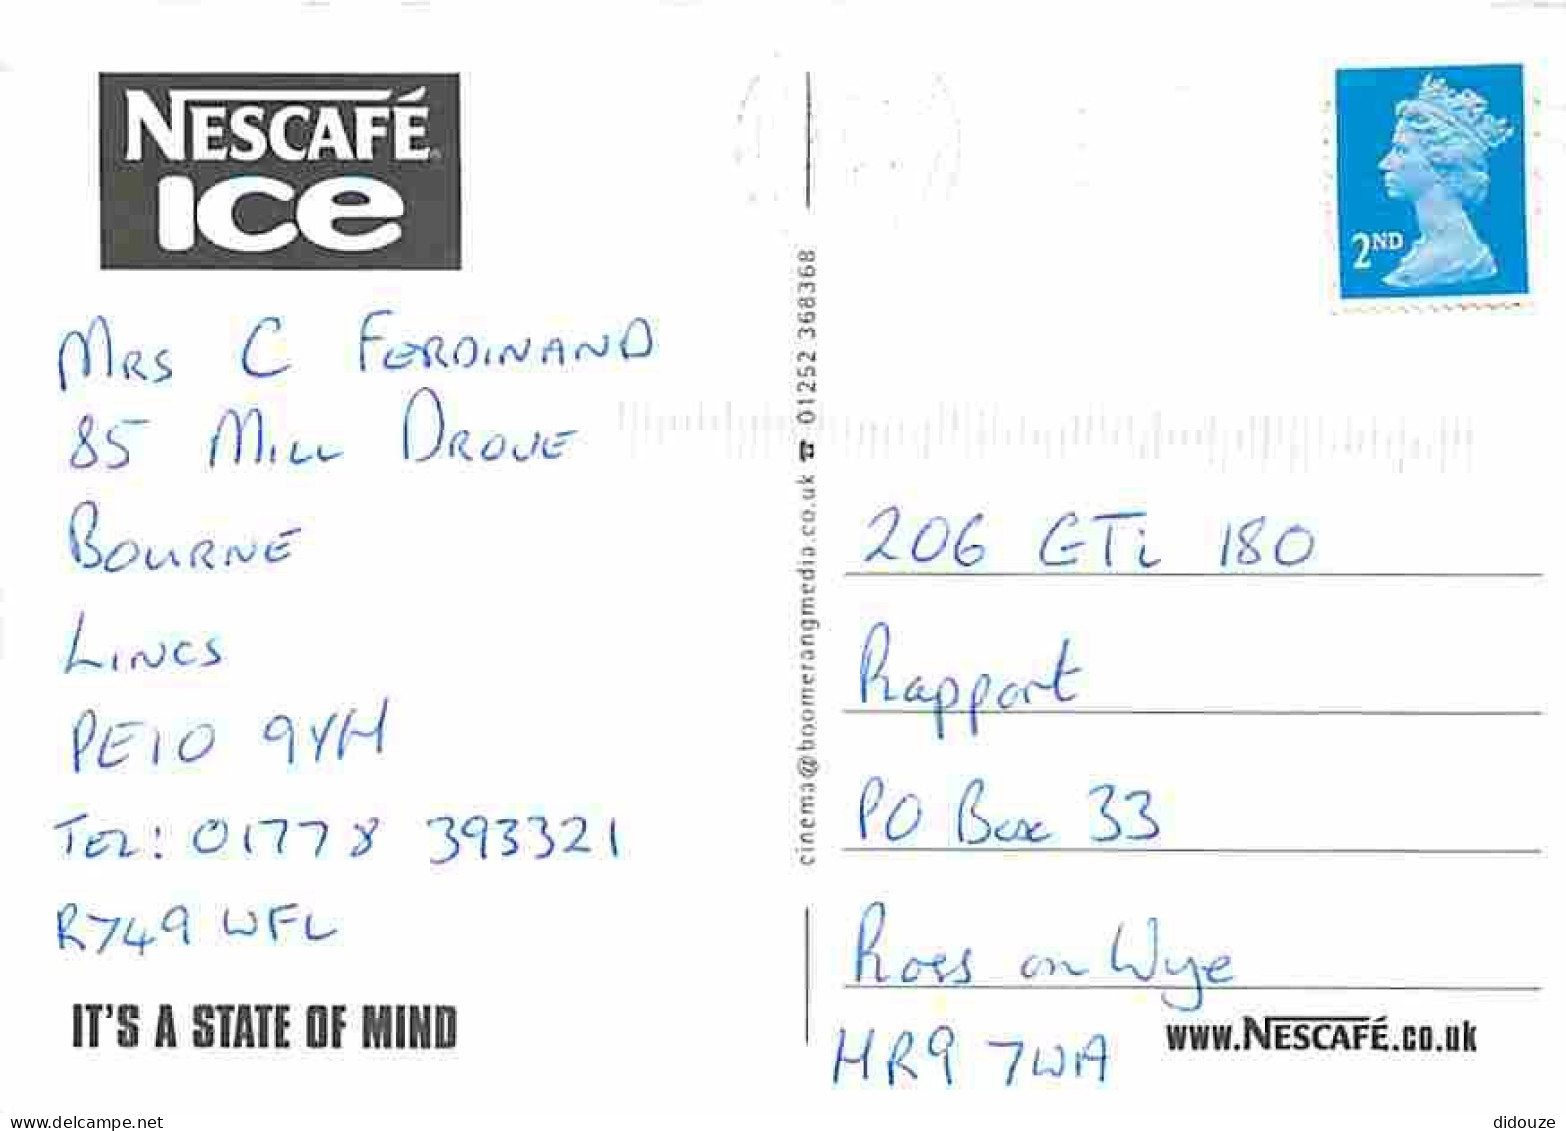 NESCAFÉ
ICE
MRS C FERDINAND
85 MILL DROVE
BOURNE
LINCS
PE10 9YH
TEL: 01778 393321
R749 WFL
IT'S A STATE OF MIND
cinema@boomerangmedia.co.uk ☎ 01252 368368
2ND
206 GTi 180
Rapport
PO Box 33
Ross on Wye
HR9 7WA
www.NESCAFÉ.co.uk
delcampe.net
didouze